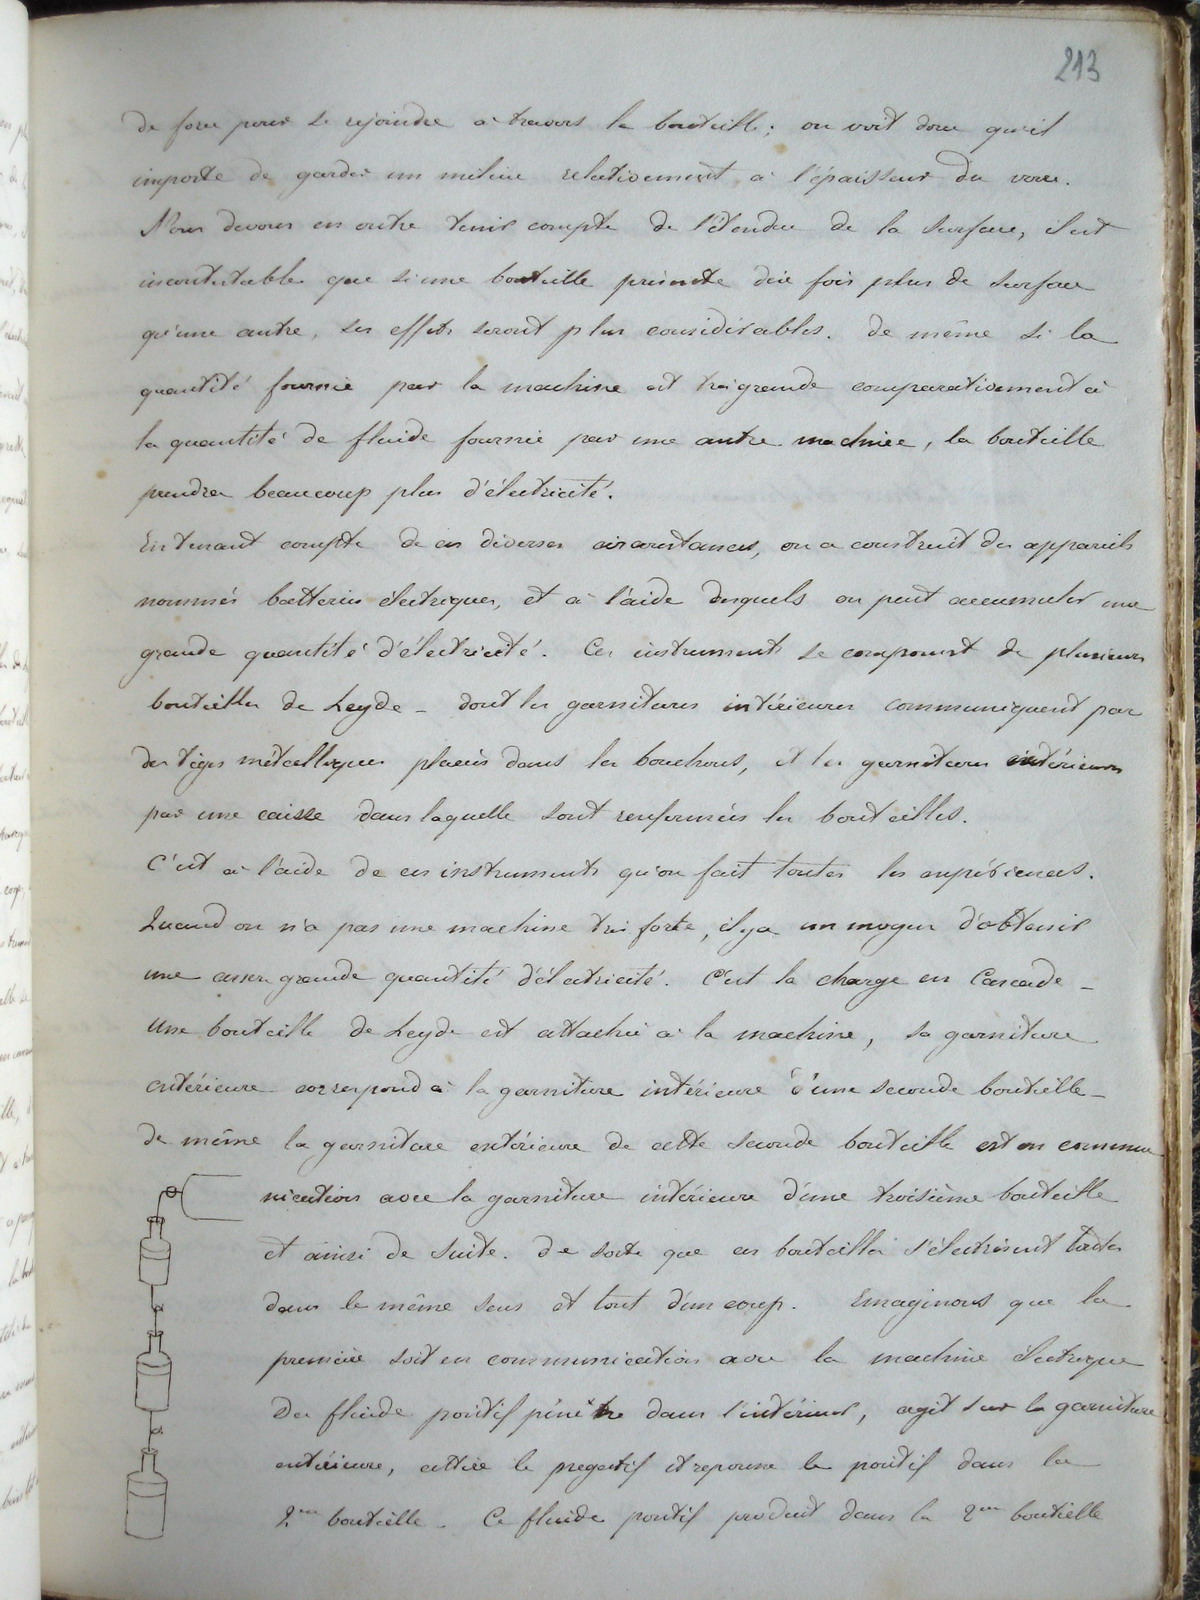 213
de force pour se rejoindre à travers la bouteille; on voit donc qu'il
importe de garder un milieu relativement à l'épaisseur du verre.
Nous devons en outre tenir compte de l'étendue de la surface, il est
incontestable que si une bouteille présente dix fois plus de surface
qu'une autre, ses effets seront plus considérables. de même si la
quantité fournie par la machine est très grande comparativement à
la quantité de fluide fournie par une autre machine, la bouteille
prendra beaucoup plus d'électricité.
En tenant compte de ces diverses circonstances, on a construit des appareils
nommés batteries électriques, et à l'aide desquels on peut accumuler une
grande quantité d'électricité. Ces instruments se composent de plusieurs
bouteilles de Leyde - dont les garnitures intérieures communiquent par
des tiges métalliques placés dans les bouchons, et les garnitures extérieures
par une caisse dans laquelle sont renfermées les bouteilles.
C'est à l'aide de ces instruments qu'on fait toutes les expériences.
Quand on n'a pas une machine très forte, il y a un moyen d'obtenir
une assez grande quantité d'électricité. C'est la charge en Cascade -
Une bouteille de Leyde est attachée à la machine, sa garniture
extérieure correspond à la garniture intérieure d'une seconde bouteille -
de même la garniture extérieure de cette seconde bouteille est en commu
nication avec la garniture intérieure d'une troisième bouteille
et ainsi de suite. de sorte que ces bouteilles s'électrisent toutes
dans le même sens et tout d'un coup. Imaginons que la
première soit en communication avec la machine électrique
Du fluide positif pénètre dans l'intérieur, agit sur la garniture
extérieure, attire le negatif et repousse le positif dans la
2me bouteille. Ce fluide positif produit dans la 2me bouteille